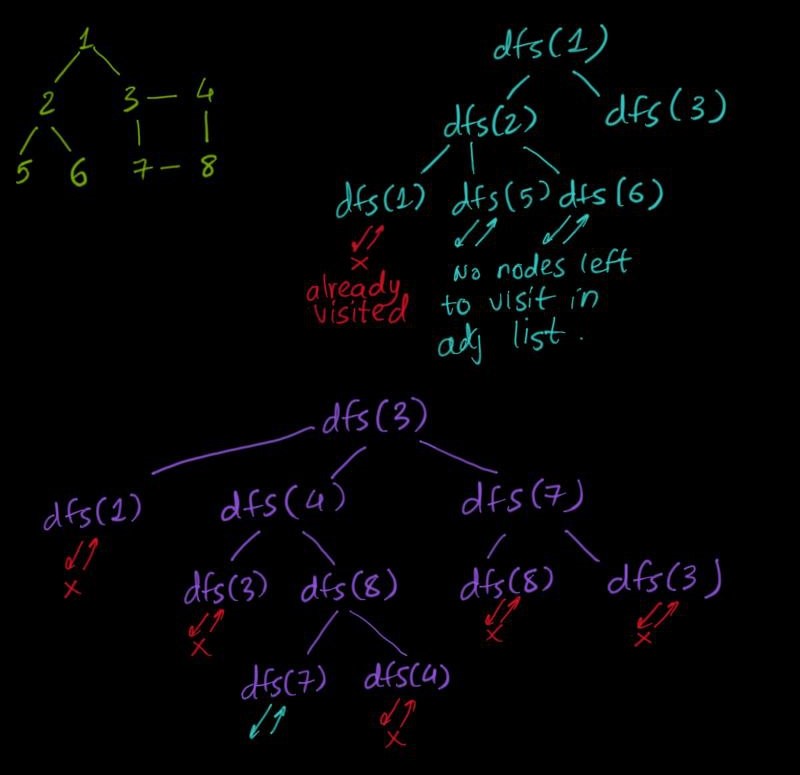 1
2 3 4
5 6 7 8
dfs(1)
dfs(2) dfs(3)
dfs(1) dfs(5) dfs(6)
x
already
visited
No nodes left
to visit in
adj list.
dfs(3)
dfs(1) dfs(4) dfs(7)
x
dfs(3) dfs(8) dfs(8) dfs(3)
x x x
dfs(7) dfs(4)
x